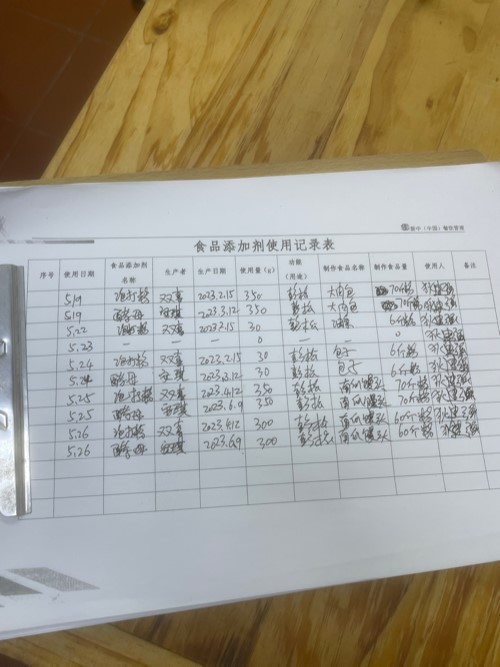 (中国)餐饮管理
食品添加剂使用记录表
序号 使用日期 食品添加剂名称 生产者 生产日期 使用量(g) 功能(用途) 制作食品名称 制作食品量 使用人 备注
5.19 泡打粉 双喜 2023.2.15 350 彭松 大肉包 70个
5.19 酵母 2023.3.12 350 彭松 大肉包 70个
5.22 泡打粉 双喜 2023.2.15 30 彭松 6个
5.23 — — — 0 — — 0
5.24 泡打粉 双喜 2023.2.15 30 彭松 包子 6个
5.24 酵母 安琪 2023.3.12 30 彭松 包子 6个
5.25 泡打粉 双喜 2023.4.12 350 彭松 南瓜馒头 70个
5.25 酵母 安琪 2023.6.9 350 彭松 南瓜馒头 70个
5.26 泡打粉 双喜 2023.4.12 300 彭松 南瓜馒头 60个
5.26 酵母 安琪 2023.6.9 300 彭松 南瓜馒头 60个